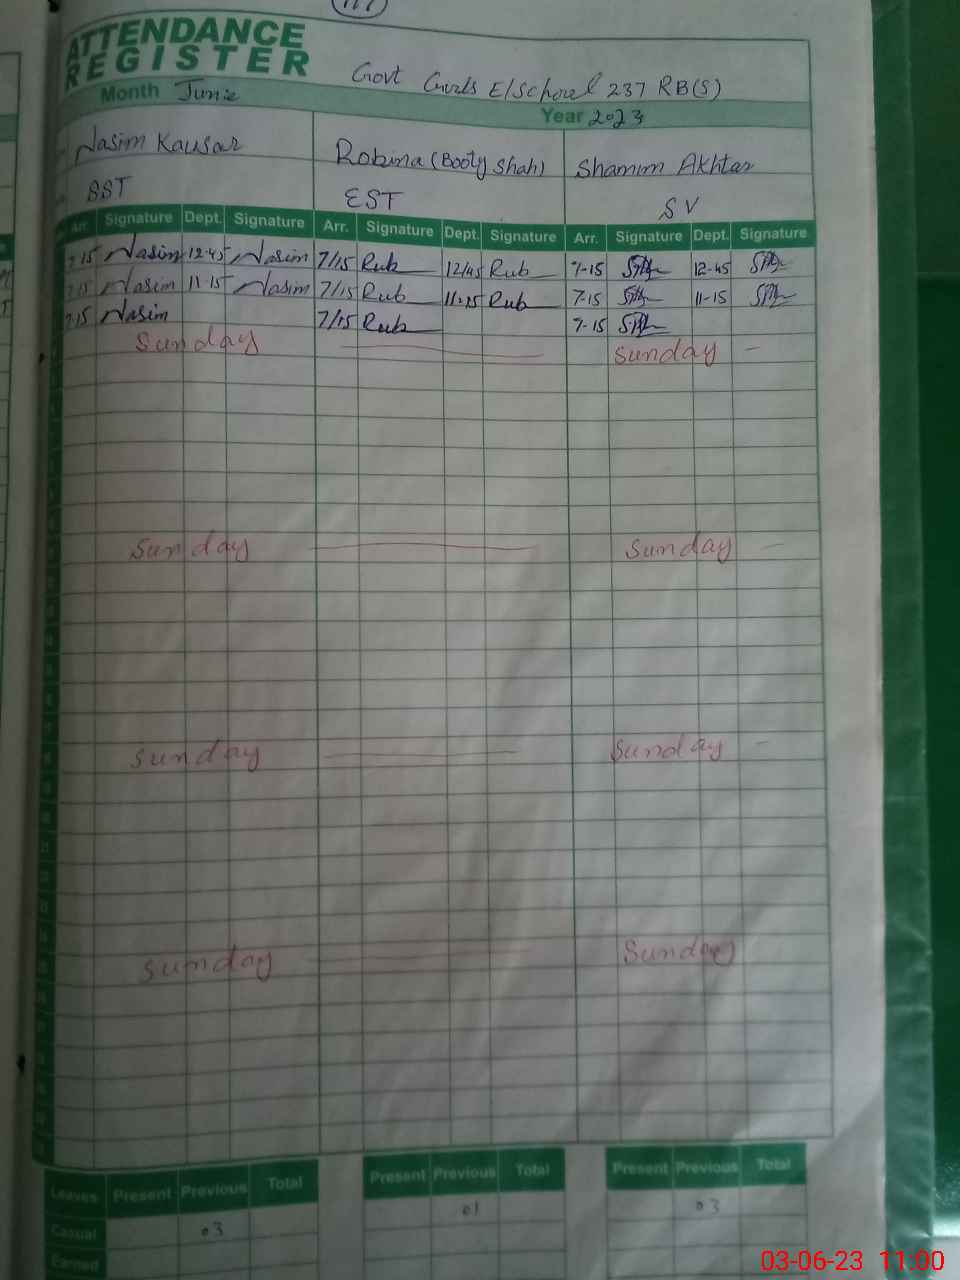 ATTENDANCE
REGISTER
Govt Girls E/School 237 RB(S)
Month June
Year 2023
Nasim Kausar Robina (Booty Shah) Shamim Akhtar
SST EST SV
Arr. Signature Dept. Signature Arr. Signature Dept. Signature Arr. Signature Dept. Signature
7-15 Nasim 12-45 Nasim 7/15 Rub 12/45 Rub 7-15 12-45
7-15 Nasim 11-15 Nasim 7/15 Rub 11-15 Rub 7-15 11-15
7-15 Nasim 7/15 Rub 7-15
Sunday Sunday
Sunday Sunday
Sunday Sunday
Sunday Sunday
Leaves Present Previous Total Present Previous Total Present Previous Total
Casual 03 01 03
Earned
03-06-23 11:00